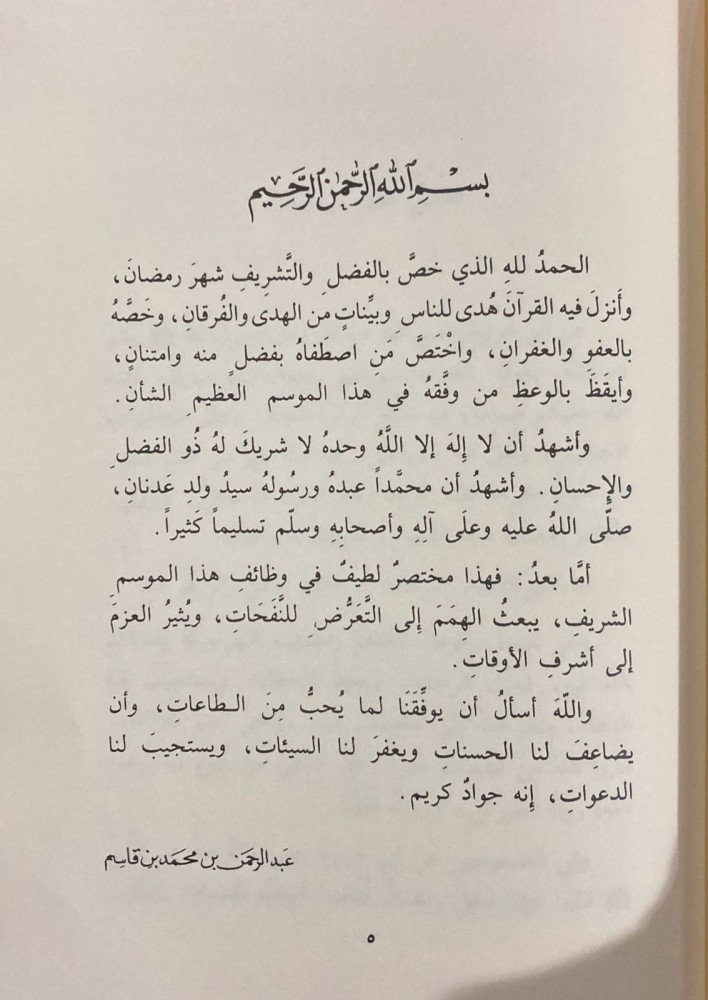 بسم الله الرحمن الرحيم
الحمدُ للهِ الذي خصَّ بالفضلِ والتَّشريفِ شهرَ رمضانَ،
وأَنزلَ فيه القرآنَ هُدى للناسِ وبيِّناتٍ من الهدى والفُرقانِ، وخَصَّهُ
بالعفوِ والغفرانِ، واخْتَصَّ مَنِ اصطَفاهُ بفضلٍ منه وامتنانٍ،
وأيقَظَ بالوعظِ من وفَّقهُ في هذا الموسمِ العظيمِ الشأنِ.
وأشهدُ أن لا إِلهَ إلا اللَّهُ وحدهُ لا شريكَ لهُ ذُو الفضلِ
والإِحسانِ. وأشهدُ أن محمَّداً عبدهُ ورسُولهُ سيدُ ولدِ عَدنانِ،
صلَّى اللهُ عليه وعلَى آلِهِ وأصحابِهِ وسلّم تسليماً كَثيراً.
أمَّا بعدُ: فهذا مختصرٌ لطيفٌ في وظائفِ هذا الموسمِ
الشريفِ، يبعثُ الهِمَمَ إلى التَّعَرُّضِ للنَّفَحَاتِ، ويُثيرُ العزمَ
إلى أشرفِ الأوقاتِ.
واللّهَ أسألُ أن يوفِّقَنَا لما يُحبُّ مِنَ الطاعاتِ، وأن
يضاعِفَ لنا الحسناتِ ويغفرَ لنا السيئاتِ، ويستجيبَ لنا
الدعواتِ، إنه جوادٌ كريم.
عبدالرحمن بن محمد بن قاسم
٥